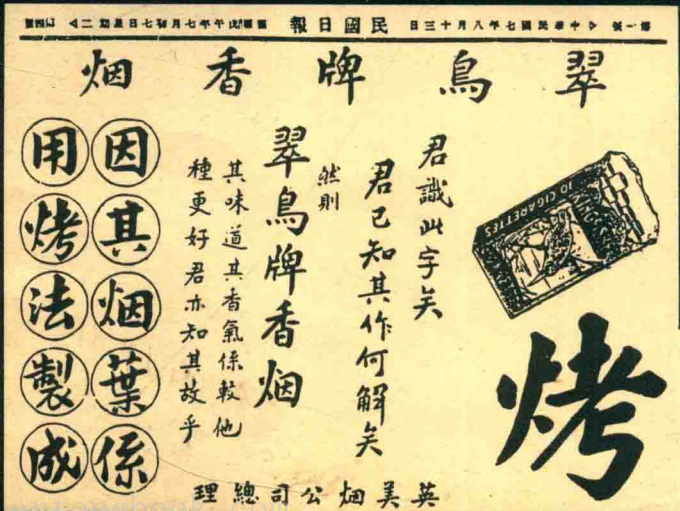 中華民國七年八月十三日
民國日報
翠鳥牌香烟
10 CIGARETTES
烤
君識此字矣
君已知其作何解矣
然則
翠鳥牌香烟
其味道其香氣係較他
種更好君亦知其故乎
因其烟葉係
用烤法製成
英美烟公司總理